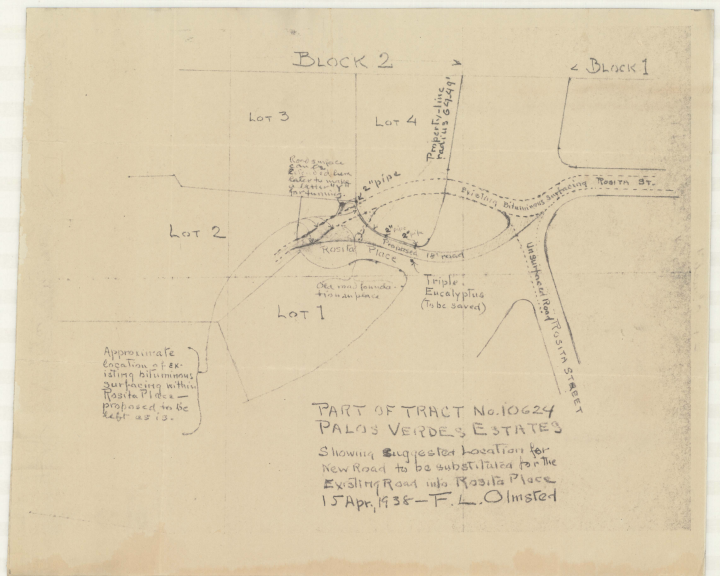 BLOCK 2
< BLOCK 1
LOT 3
LOT 4
Property-line
radius 69.49'
2" pine
Existing Bituminous Surfacing
ROSITA ST.
LOT 2
Rosita Place
Proposed 18' road
Triple
Eucalyptus
(To be saved)
Unsurfaced Road
ROSITA STREET
LOT 1
Approximate
location of ex-
isting bituminous
surfacing within
Rosita Place —
proposed to be
left as is.
PART OF TRACT No. 10624
PALOS VERDES ESTATES
Showing Suggested Location for
New Road to be substituted for the
Existing Road into Rosita Place
15 Apr., 1938 — F. L. Olmsted